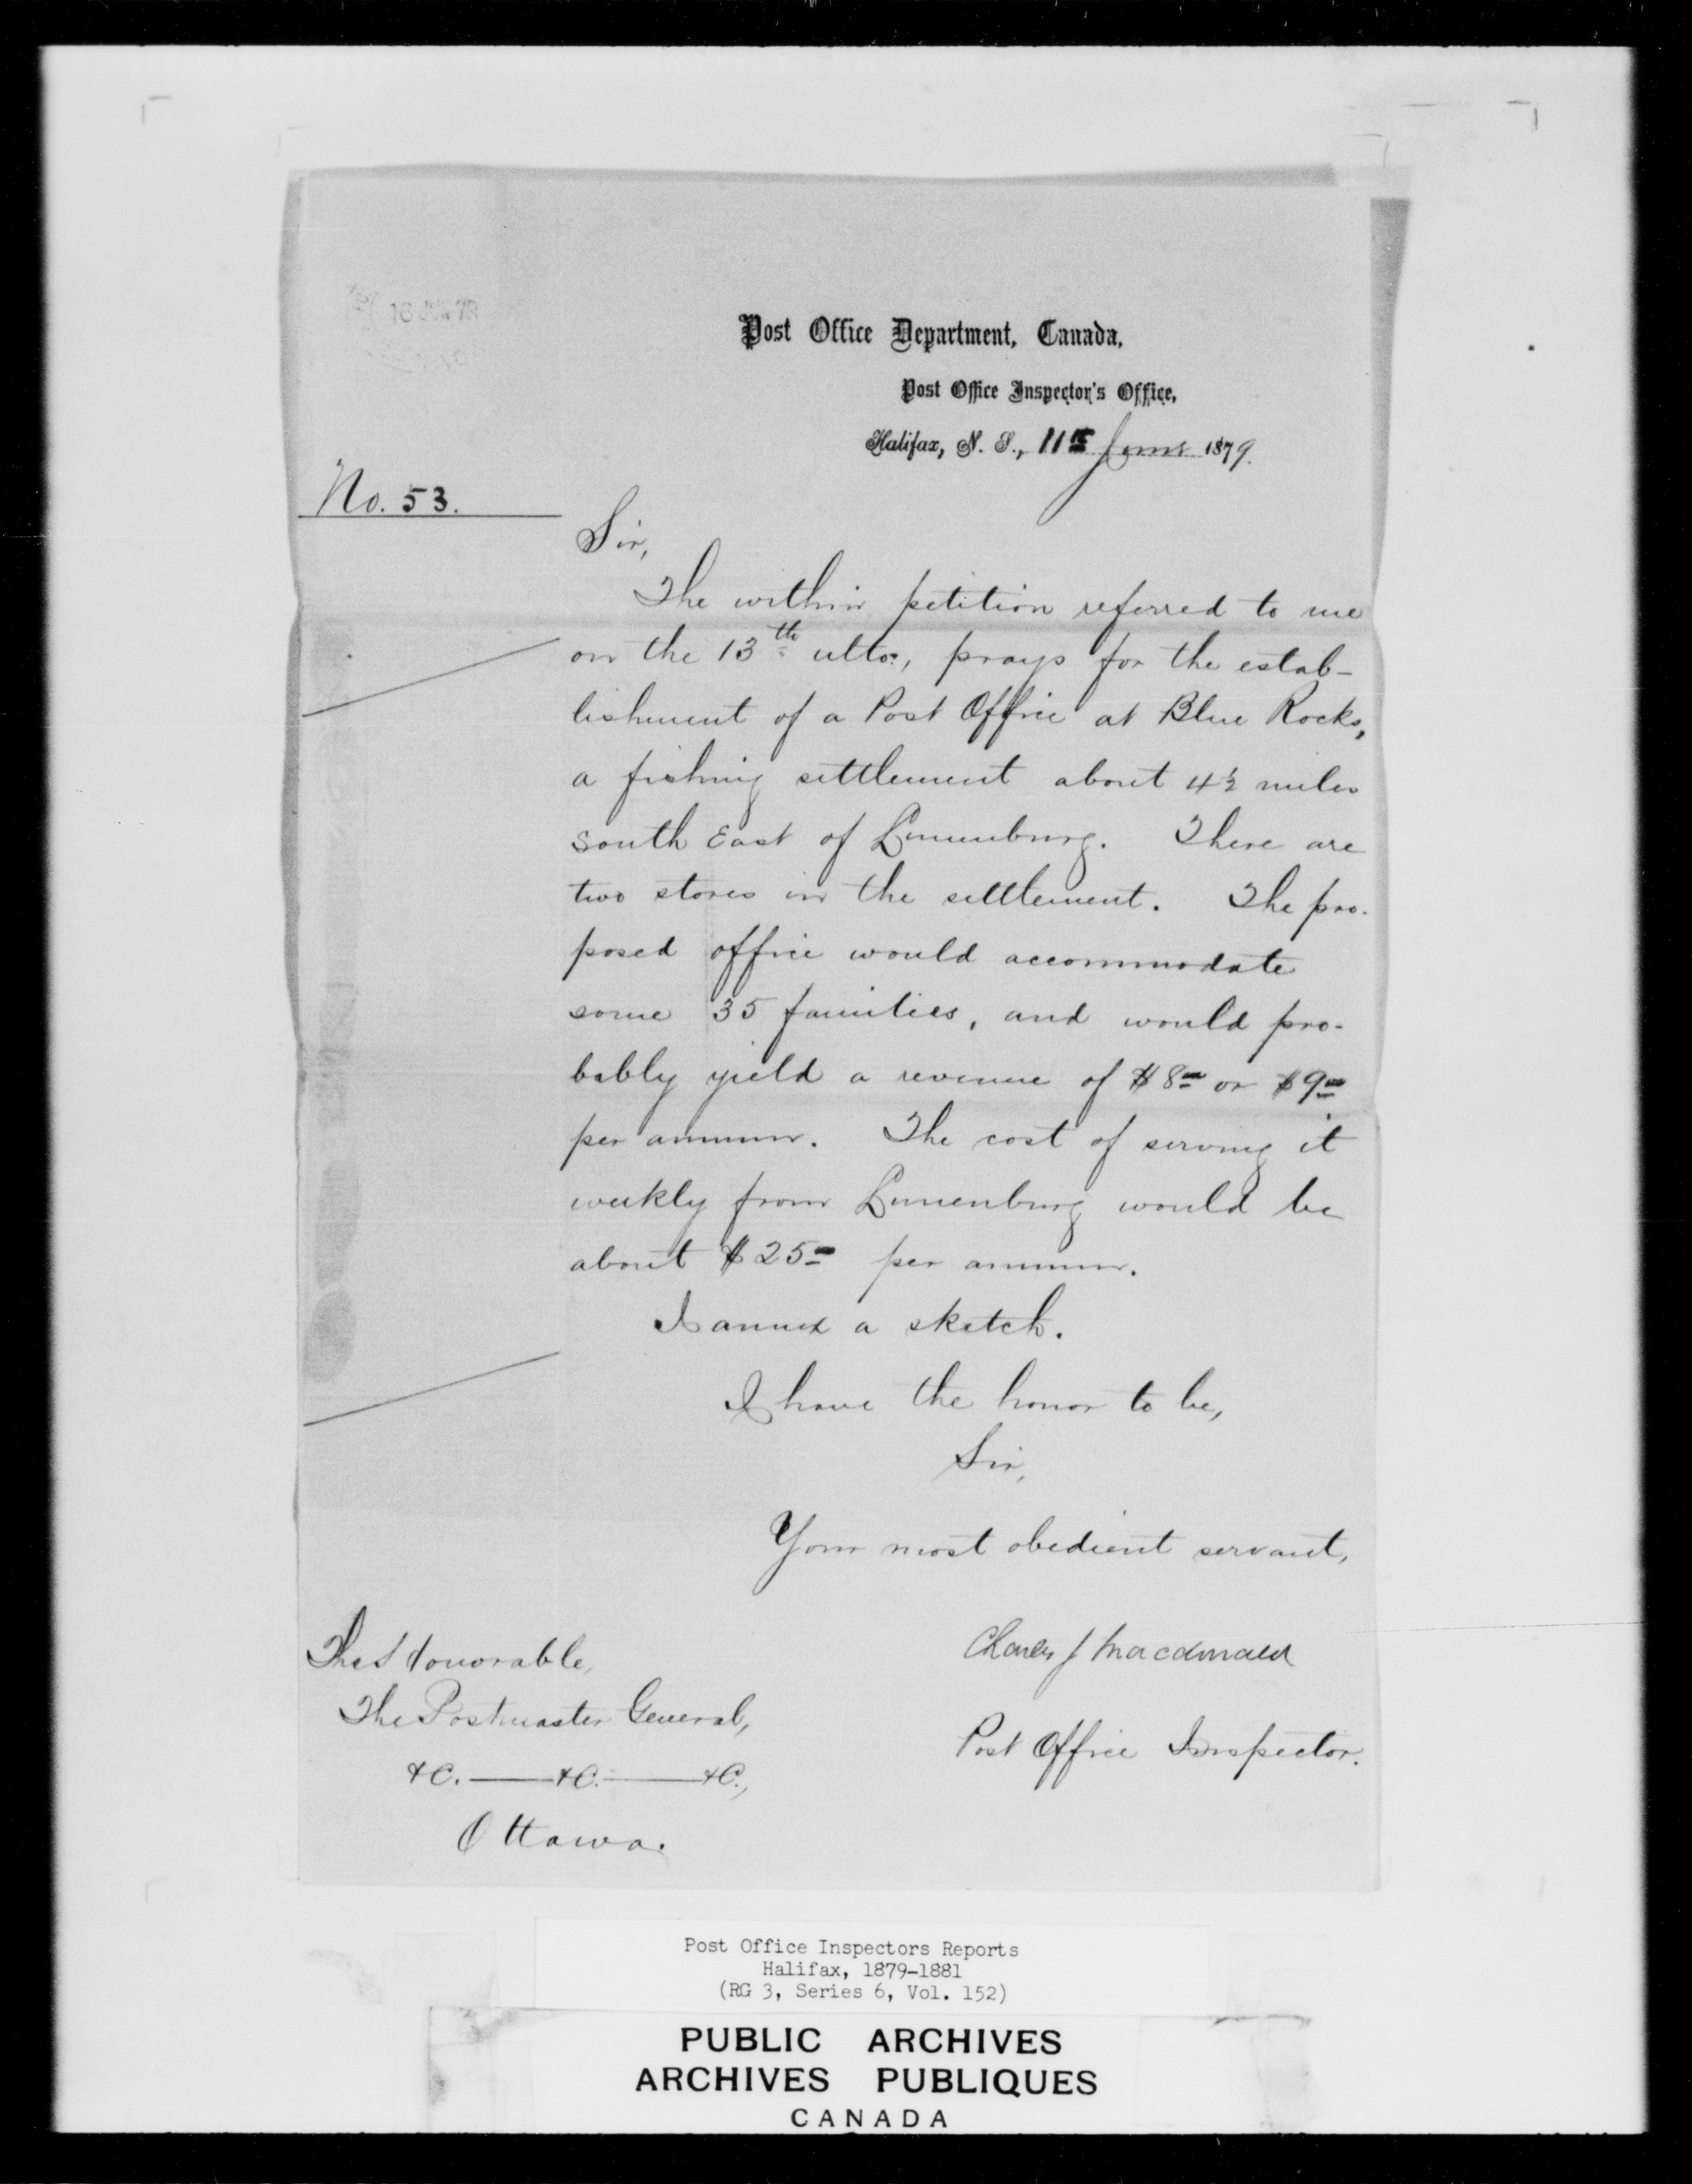 16 JUN 79
Post Office Department, Canada,
Post Office Inspector's Office,
Halifax, N. S., 11th June 1879.
No. 53.
Sir,
The within petition referred to me
on the 13th ulto:, prays for the estab-
lishment of a Post Office at Blue Rocks,
a fishing settlement about 4½ miles
South East of Lunenburg. There are
two stores in the settlement. The pro-
posed office would accommodate
some 35 families, and would pro-
bably yield a revenue of $8= or $9=
per annum. The cost of serving it
weekly from Lunenburg would be
about $25= per annum.
I annex a sketch.
I have the honor to be,
Sir,
Your most obedient servant,
Charles J Macdonald
Post Office Inspector.
The Honorable,
The Postmaster General,
&C. — &C. — &C.,
Ottawa.
Post Office Inspectors Reports
Halifax, 1879-1881
(RG 3, Series 6, Vol. 152)
PUBLIC ARCHIVES
ARCHIVES PUBLIQUES
CANADA